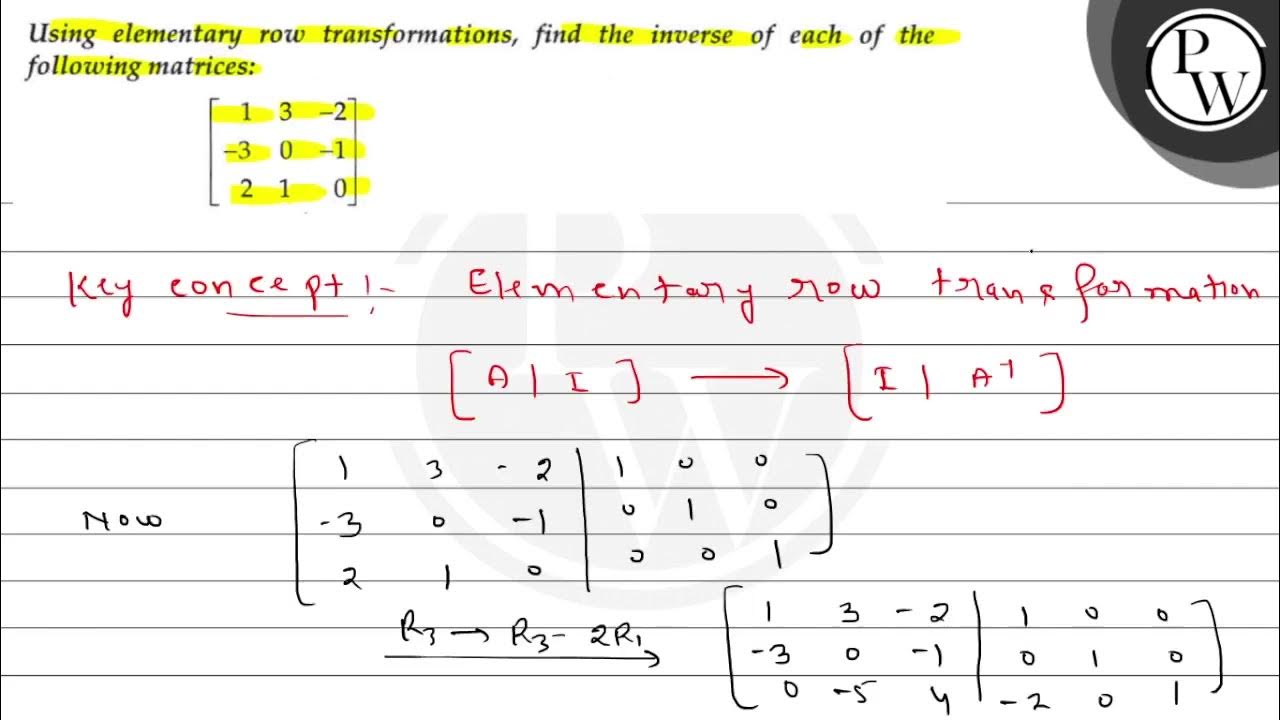 Using elementary row transformations, find the inverse of each of the
following matrices:
1 3 -2
-3 0 -1
2 1 0
PW
Key concept :- Elementary row transformation
[A | I] → [I | A⁻¹]
1 3 -2 | 1 0 0
Now -3 0 -1 | 0 1 0
2 1 0 | 0 0 1
R3 → R3 - 2R1
1 3 -2 | 1 0 0
-3 0 -1 | 0 1 0
0 -5 4 | -2 0 1